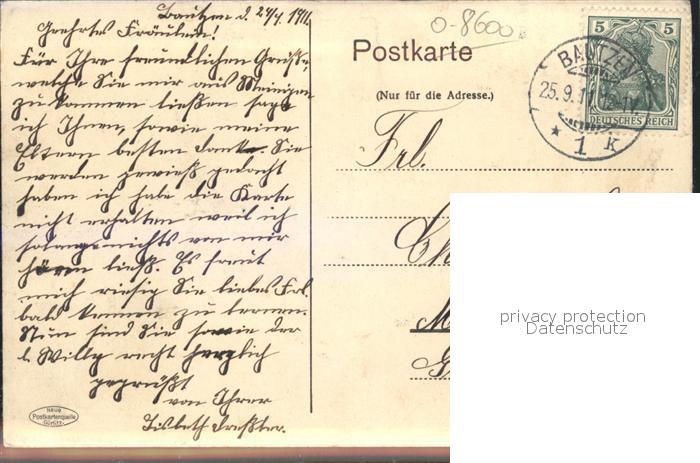 Bautzen d. 24/9. 1911.
Geehrtes Fräulein!
Für Ihre freundlichen Grüße,
welche Sie mir aus Meinigen
zu kommen ließen sage
ich Ihnen, sowie meine
Eltern besten Dank. Sie
werden gewiß gedacht
haben ich habe die Karte
nicht erhalten weil ich
solange nichts von mir
hören ließ. Es freut
mich riesig Sie liebes Frl.
bald kennen zu lernen.
Nun sind Sie sowie der
l. Willy recht herzlich
gegrüßt
von Ihrer
Lisbeth
NEUE
Postkartenquelle
Görlitz
0-8600
Postkarte
(Nur für die Adresse.)
5 5
DEUTSCHES REICH
BAUTZEN
25.9.11
* 1 K
Frl.
privacy protection
Datenschutz